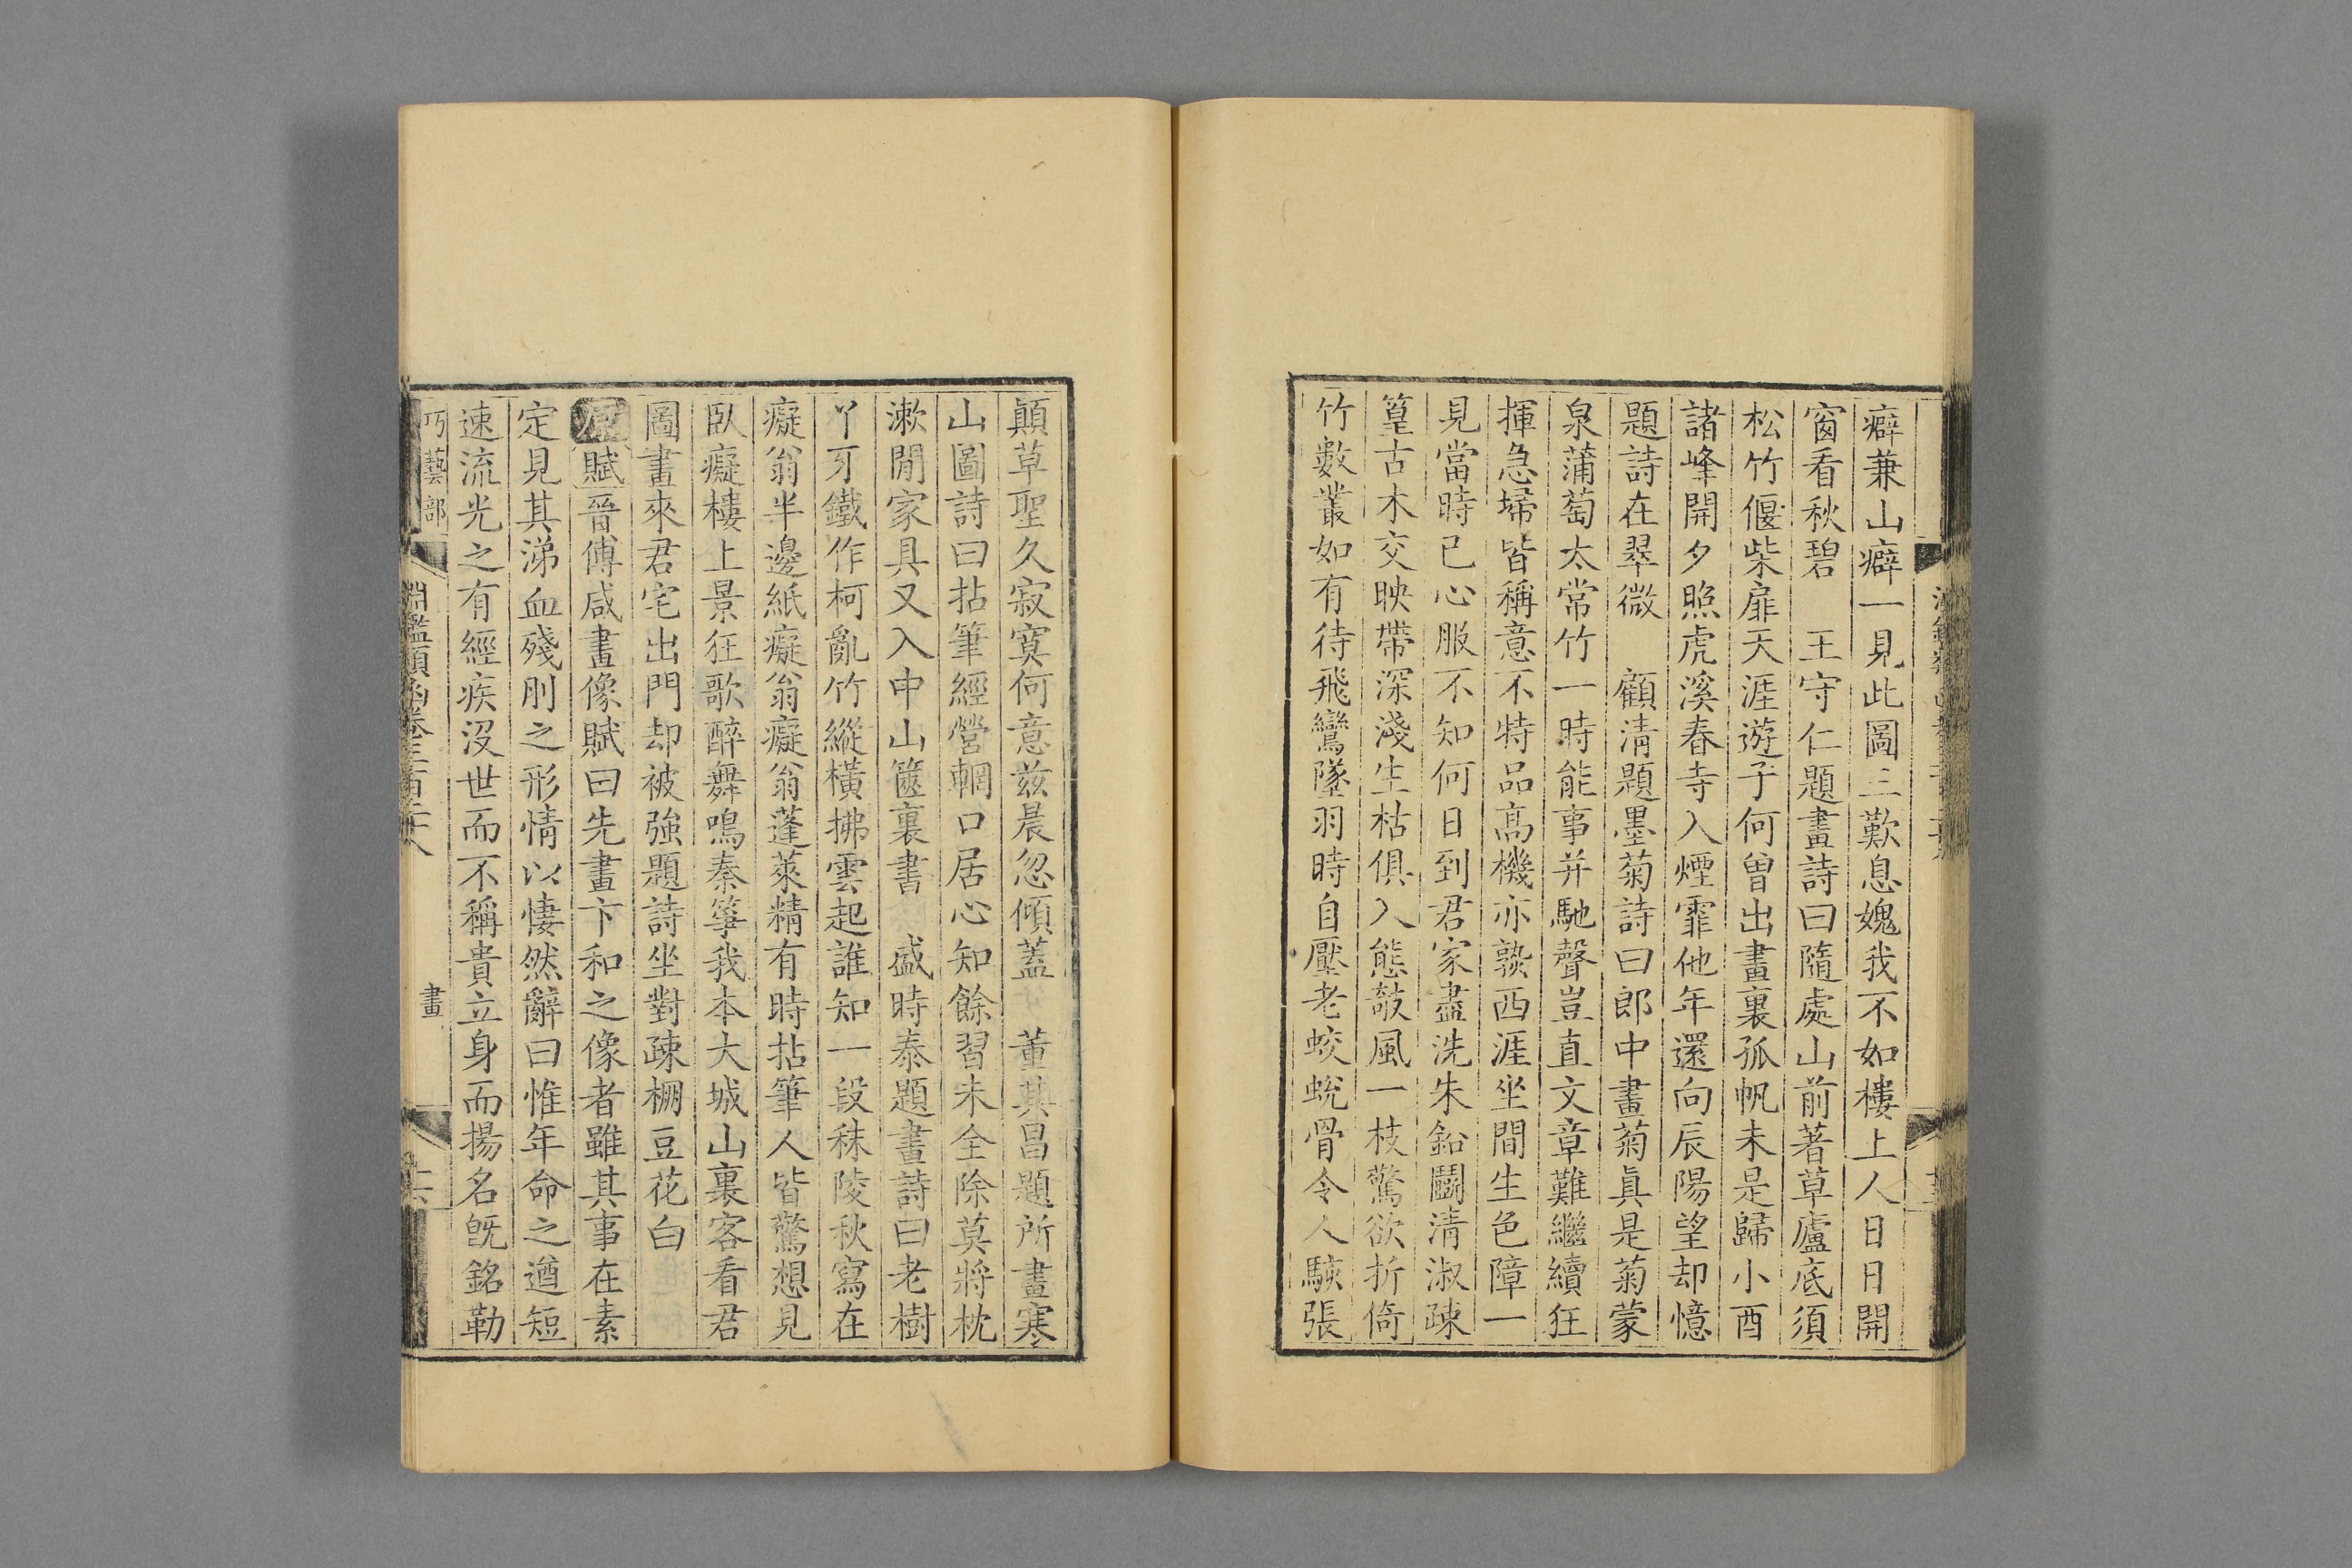 癖兼山癖一見此圖三歎息媿我不如樓上人日日開
窗看秋碧　王守仁題畫詩曰隨處山前著草廬底須
松竹偃柴扉天涯遊子何曾出畫裏孤帆未是歸小酉
諸峰開夕照虎溪春寺入煙霏他年還向辰陽望却憶
題詩在翠微　顧清題墨菊詩曰郎中畫菊眞是菊蒙
泉蒲萄太常竹一時能事并馳聲豈直文章難繼續狂
揮急埽皆稱意不特品高機亦熟西涯坐間生色障一
見當時已心服不知何日到君家盡洗朱鉛鬭清淑疎
篁古木交映帶深淺生枯俱入態敧風一枝驚欲折倚
竹數叢如有待飛鸞墜羽時自壓老蛟蛻骨令人駭張
顛草聖久寂寞何意兹晨忽傾蓋　董其昌題所畫寒
山圖詩曰拈筆經營輞口居心知餘習未全除莫將枕
漱閒家具又入中山篋裏書　盛時泰題畫詩曰老樹
丫牙鐵作柯亂竹縱橫拂雲起誰知一段秣陵秋寫在
癡翁半邊紙癡翁癡翁蓬萊精有時拈筆人皆驚想見
臥癡樓上景狂歌醉舞鳴秦箏我本大城山裏客看君
圖畫來君宅出門却被強題詩坐對疎棚豆花白
賦晉傅咸畫像賦曰先畫卞和之像者雖其事在素
定見其涕血殘刖之形情以悽然辭曰惟年命之遒短
速流光之有經疾沒世而不稱貴立身而揚名旣銘勒
巧藝部　淵鑑類函卷三百二十八　畫